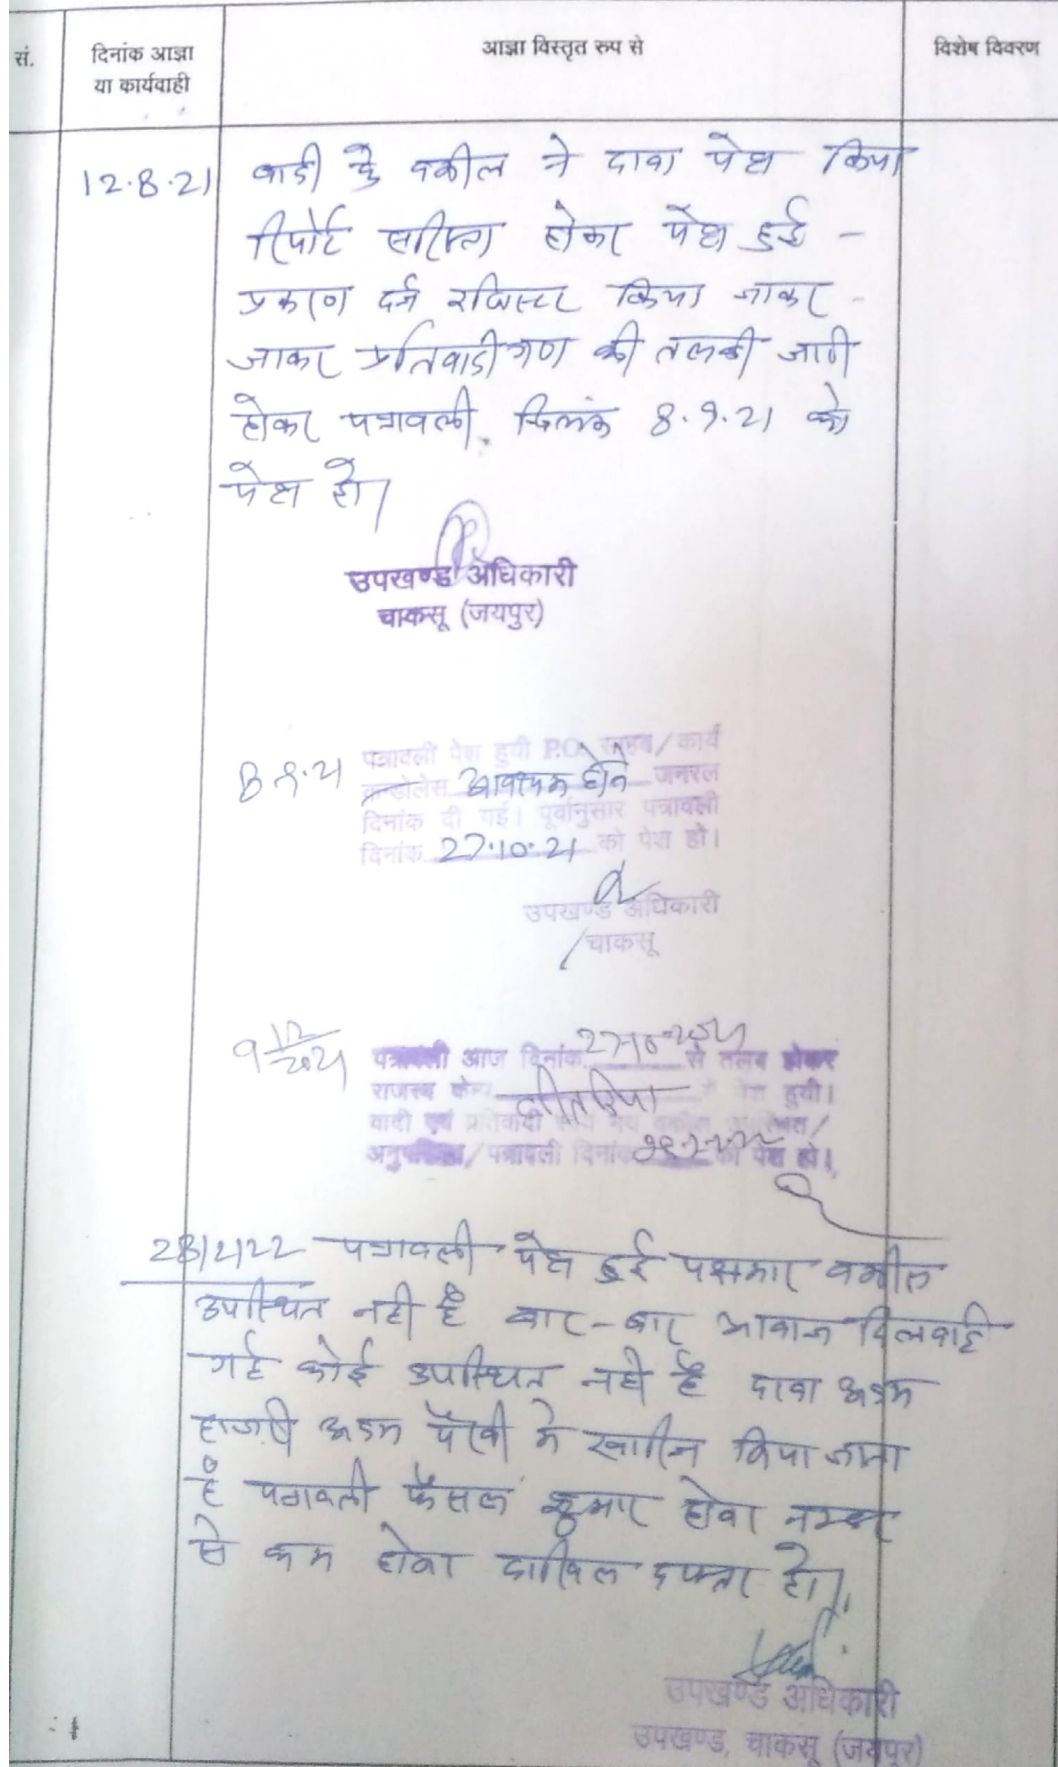 सं.
दिनांक आज्ञा
या कार्यवाही
आज्ञा विस्तृत रुप से
विशेष विवरण
12.8.21 वादी के वकील ने दावा पेश किया
रिपोर्ट सरिस्ता होकर पेश हुई -
प्रकरण दर्ज रजिस्टर किया जाकर
जाकर प्रतिवादीगण की तलबी जारी
होकर पत्रावली दिनांक 8.9.21 को
पेश हो।
उपखण्ड अधिकारी
चाकसू (जयपुर)
8.9.21 पत्रावली पेश हुयी P.O. साहब/कार्य
आवश्यक होने जनरल
दिनांक दी गई। पूर्वानुसार पत्रावली
दिनांक 27.10.21 को पेश हो।
उपखण्ड अधिकारी
चाकसू
पत्रावली आज दिनांक से तलब होकर
राजस्व पेश हुयी।
वादी एवं प्रतिवादी
पत्रावली दिनांक को पेश हो।
28/2/22 पत्रावली पेश हुई पक्षकार वकील
उपस्थित नही है बार-बार आवाज दिलवाई
गई कोई उपस्थित नही है दावा अदम
हाजरी अदम पैरवी मे खारिज किया जाता
है पत्रावली फैसल शुमार होकर नम्बर
से कम होकर दाखिल दफ्तर हो।
उपखण्ड अधिकारी
उपखण्ड, चाकसू (जयपुर)